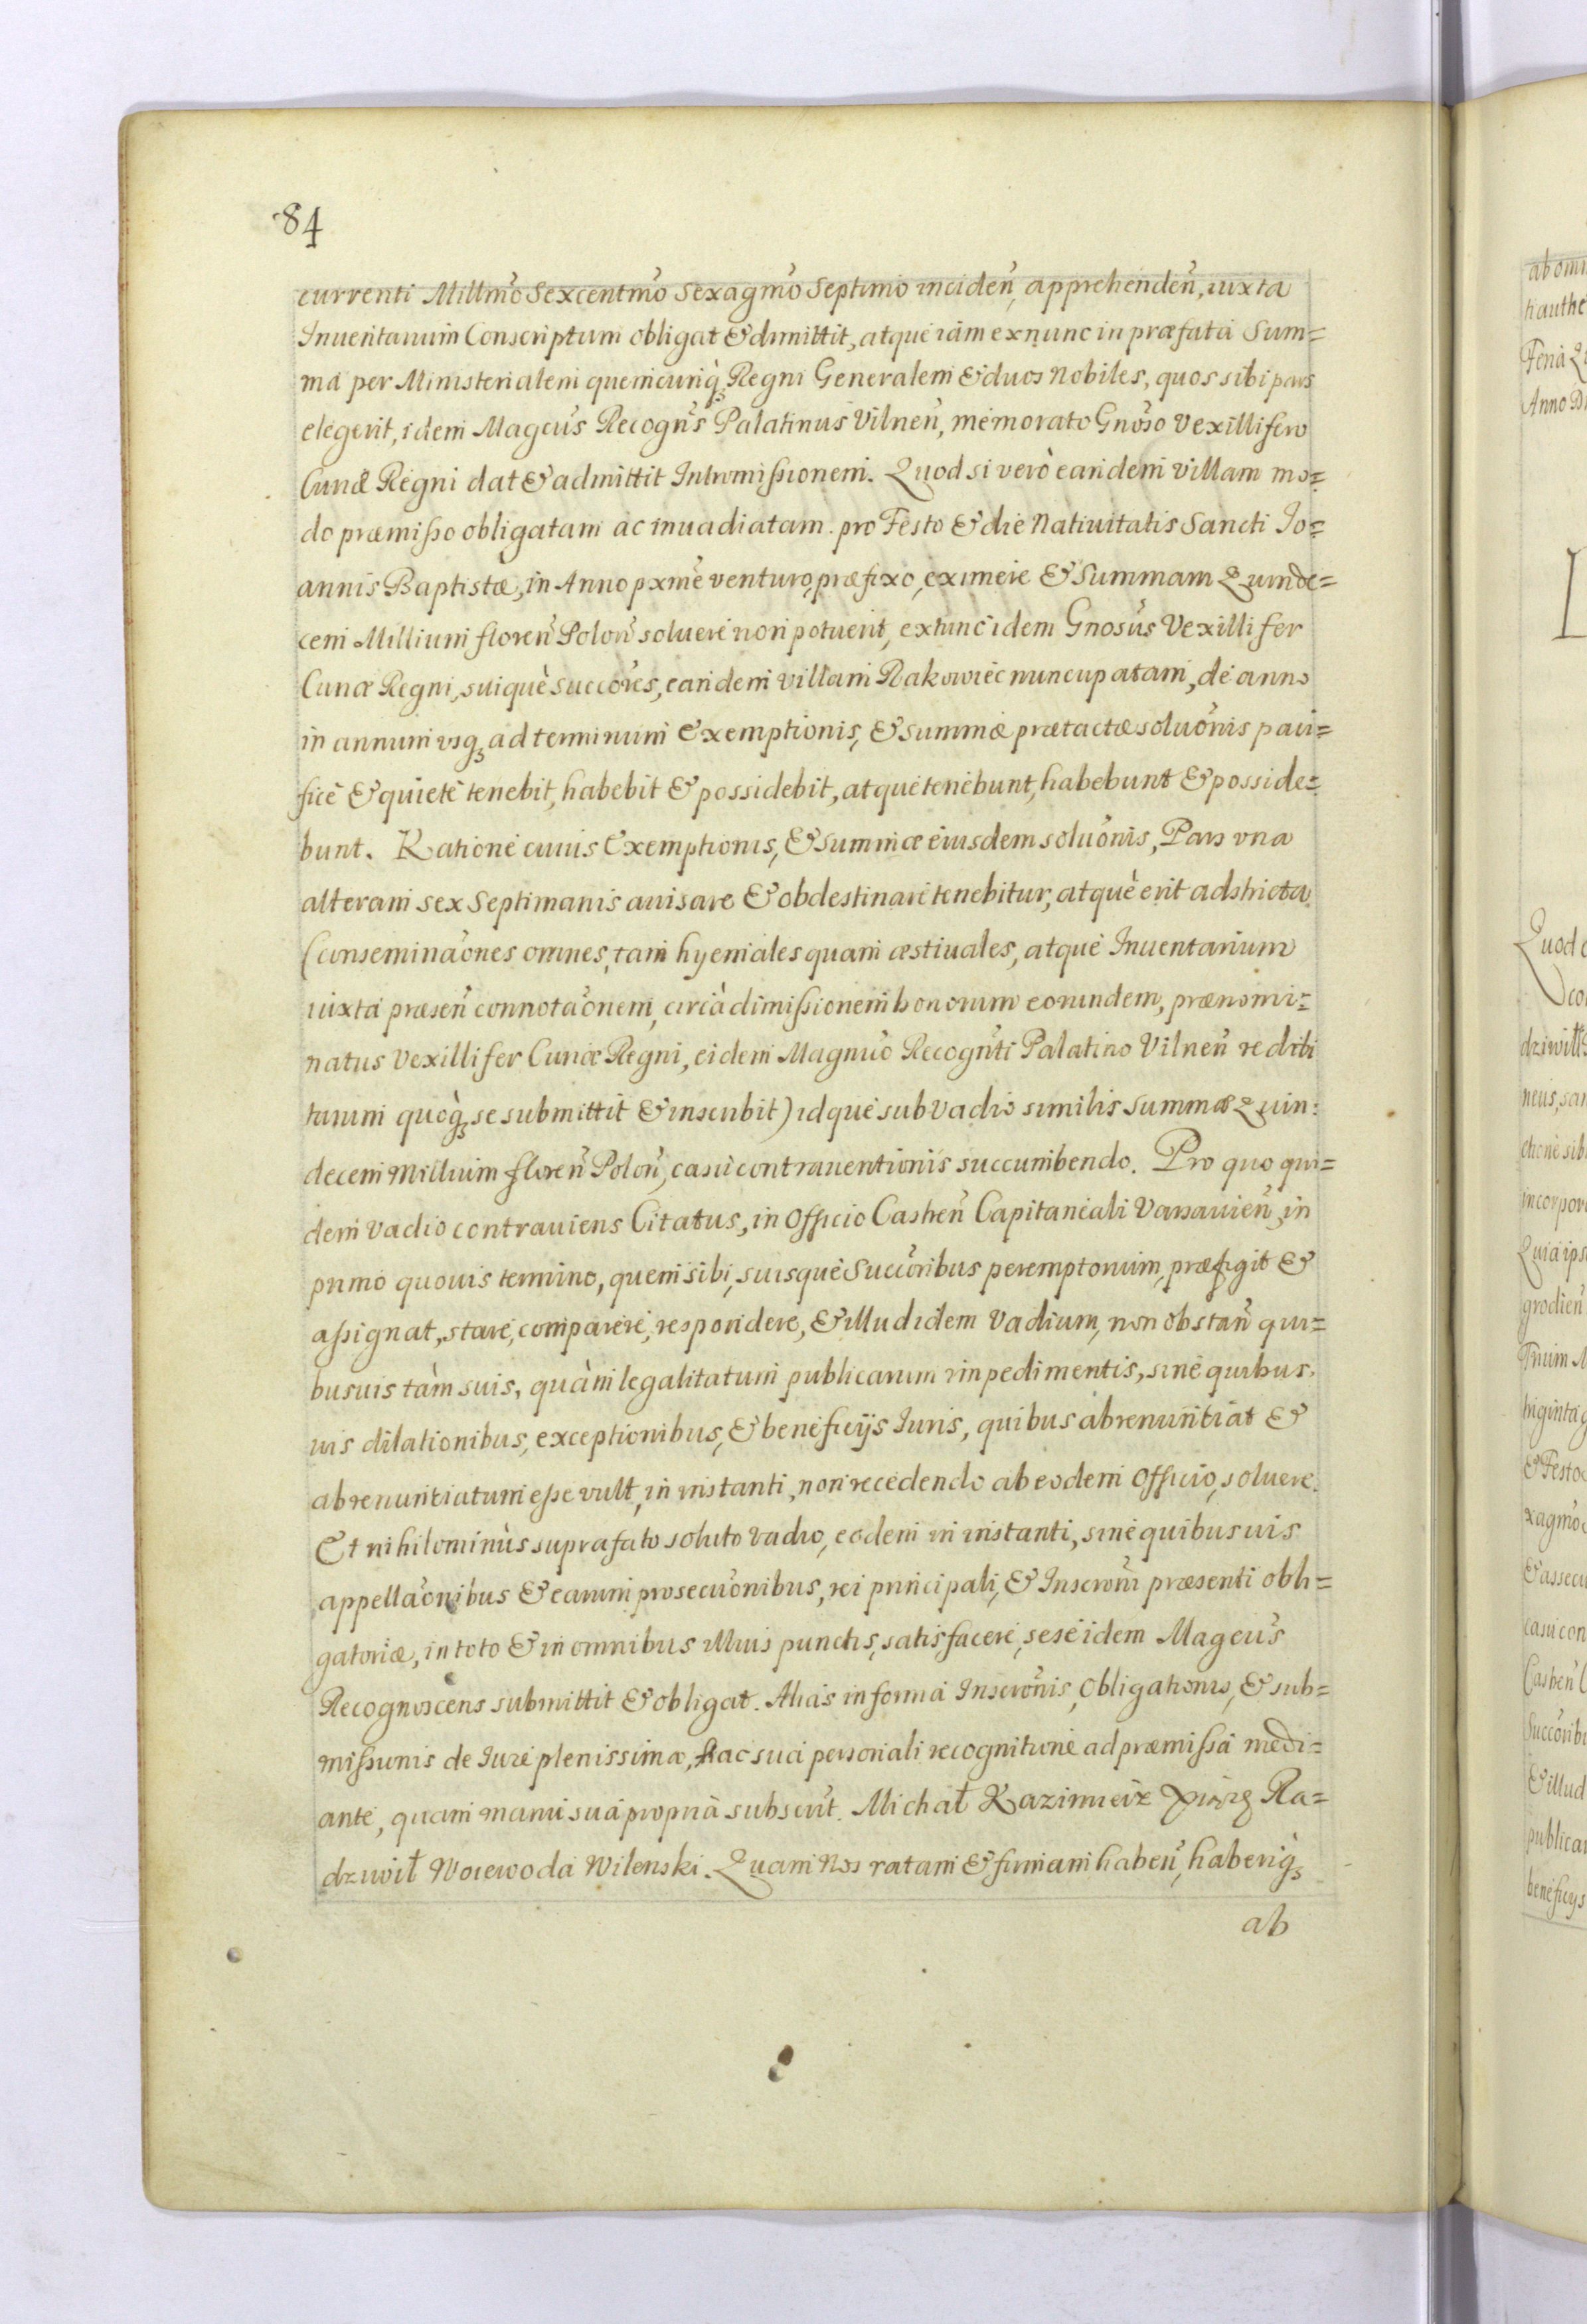 84
currenti Millmo Sexcentmo Sexagmo Septimo inciden, apprehenden, iuxta
Inuentarium Conscriptum obligat & dimittit, atque iam ex nunc in præfata Sum=
ma per Ministerialem quemcunq Regni Generalem & duos Nobiles, quos sibi pars
elegerit, idem Magcus Recogns Palatinus Vilnen, memorato Gnoso Vexillifero
Curiæ Regni dat & admittit Intromissionem. Quod si verò eandem villam mo=
do præmisso obligatam ac inuadiatam pro Festo & die Natiuitatis Sancti Jo=
annis Baptistæ, in Anno pxme venturo, præfixo, eximere & Summam Quinde=
cem Millium floren Polon soluere non potuerit, extunc idem Gnosus Vexillifer
Curiæ Regni, suique succores, eandem villam Rakowiec nuncupatam, de anno
in annum vsq ad terminum Exemptionis, & summæ prætactæ soluonis paci=
ficè & quietè tenebit, habebit & possidebit, atque tenebunt, habebunt & posside=
bunt. Ratione cuius Exemptionis, & summæ eiusdem soluonis, Pars vna
alteram sex Septimanis auisare & obdestinare tenebitur, atquè erit adstricta
(conseminaones omnes, tam hyemales quam æstiuales, atque Inuentarium
iuxta præsen connotaonem, circà dimissionem bonorum eorundem, prænomi=
natus Vexillifer Curiæ Regni, eidem Magnuo Recognti Palatino Vilnen reddi
turum quoq se submittit & inscribit) idque sub Vadio similis Summæ Quin=
decem Millium floren Polon, casu contrauentionis succumbendo. Pro quo qui=
dem Vadio contraviens Citatus, in Officio Castren Capitaneali Varsauien, in
primo quouis termino, quem sibi, suisque Succoribus peremptorium, præfigit &
assignat, stare, comparere, respondere, & illud idem Vadium, non obstan qui=
busuis tàm suis, quàm legalitatum publicarum impedimentis, sine quibus.
uis dilationibus, exceptionibus, & beneficijs Iuris, quibus abrenuntiat &
abrenuntiatum esse vult, in instanti, non recedendo ab eodem Officio, soluere.
Et nihilominùs suprafato soluto Vadio, eodem in instanti, sine quibusuis
appellaonibus & earum prosecuonibus, rei principali, & Inscroni præsenti obli=
gatoriæ, in toto & in omnibus illius punctis, satisfacere, sese idem Magcus
Recognoscens submittit & obligat. Aliàs in forma Inscronis, Obligationis, & sub=
missionis de Iure plenissimæ, hac sua personali recognitione ad præmissa medi=
ante, quam manu sua propria subscrit. Michał Kazimierz Xiążę Ra=
dziwił Woiewoda Wilenski. Quam Nos ratam & firmam haben, haberiq
ab